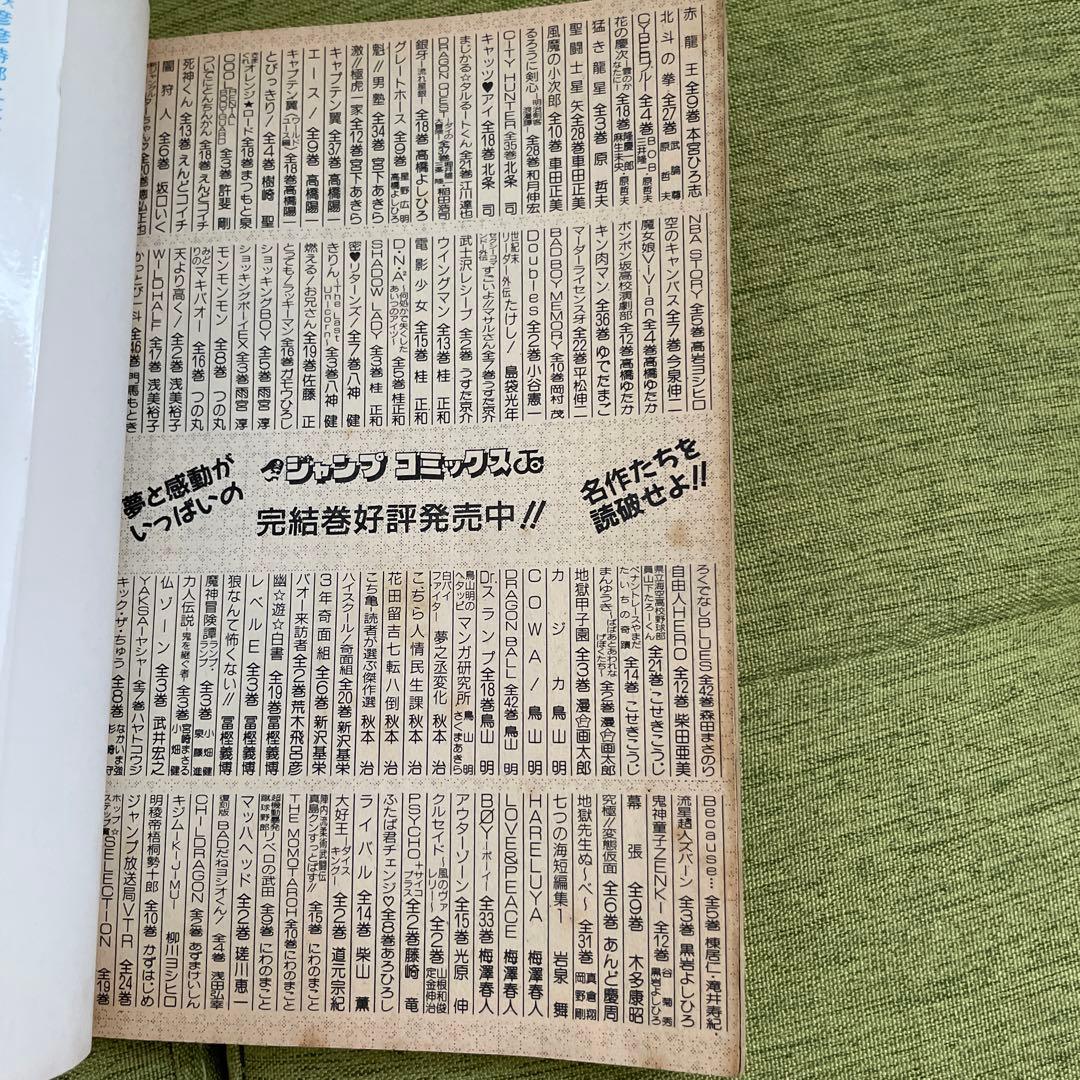 赤龍王 全9巻 本宮ひろ志
北斗の拳 全27巻 武論尊 原哲夫
CYBERブルー 全4巻 BOB 三井隆一 原哲夫
花の慶次 雲のかなたに 全18巻 隆慶一郎 麻生未央 原哲夫
猛き龍星 全3巻 原哲夫
聖闘士星矢 全28巻 車田正美
風魔の小次郎 全10巻 車田正美
るろうに剣心 ―明治剣客浪漫譚― 全28巻 和月伸宏
CITY HUNTER 全35巻 北条司
キャッツ♥アイ 全18巻 北条司
まじかる☆タルるートくん 全21巻 江川達也
DRAGON QUEST ―ダイの大冒険― 全37巻 三条陸 稲田浩司
銀牙 ―流れ星 銀― 全18巻 高橋よしひろ
グレートホース 全9巻 星野広明 高橋よしひろ
魁!!男塾 全34巻 宮下あきら
激!!極虎一家 全12巻 宮下あきら
キャプテン翼 全37巻 高橋陽一
キャプテン翼 ワールドユース編 全18巻 高橋陽一
エース! 全9巻 高橋陽一
とびっきり! 全4巻 樹崎聖
きまぐれオレンジ☆ロード 全18巻 まつもと泉
COOL RENTAL BODY GUARD 全3巻 許斐剛
ついでにとんちんかん 全18巻 えんどコイチ
死神くん 全13巻 えんどコイチ
闇狩人 全6巻 坂口いく
NBA STORY 全6巻 高岩ヨシヒロ
空のキャンバス 全7巻 今泉伸二
魔女娘ViVian 全4巻 高橋ゆたか
ボンボン坂高校演劇部 全12巻 高橋ゆたか
キン肉マン 全36巻 ゆでたまご
マーダーライセンス牙 全22巻 平松伸二
BADBOY MEMORY 全10巻 岡村茂
Doubles 全2巻 小谷憲一
世紀末リーダー外伝たけし! 島袋光年
セクシーコマンドー外伝 すごいよ!!マサルさん 全7巻 うすた京介
武士沢レシーブ 全2巻 うすた京介
ウイングマン 全13巻 桂正和
電影少女 全15巻 桂正和
D・N・A² ―何処かで失くしたあいつのアイツ― 全5巻 桂正和
SHADOW LADY 全3巻 桂正和
密♥リターンズ! 全7巻 八神健
きりん ―The Last Unicorn― 全3巻 八神健
燃える!お兄さん 全19巻 佐藤正
とっても!ラッキーマン 全16巻 ガモウひろし
ショッキングBOY 全5巻 雨宮淳
ショッキングボーイEX 全3巻 雨宮淳
モンモンモン 全8巻 つの丸
みどりのマキバオー 全16巻 つの丸
天より高く! 全2巻 浅美裕子
WILD HALF 全17巻 浅美裕子
かっとび一斗 全46巻 門馬もとき
夢と感動がいっぱいの
ジャンプ コミックス
完結巻好評発売中!!
名作たちを読破せよ!!
ろくでなしBLUES 全42巻 森田まさのり
自由人HERO 全12巻 柴田亜美
県立海空高校野球部員山下たろーくん 全21巻 こせきこうじ
ペナントレース やまだたいちの奇蹟 全14巻 こせきこうじ
まんゆうき ―ばばあとあわれなげぼくたち― 全2巻 漫☆画太郎
地獄甲子園 全3巻 漫☆画太郎
カジカ 鳥山明
COWA! 鳥山明
DRAGON BALL 全42巻 鳥山明
Dr.スランプ 全18巻 鳥山明
鳥山明のヘタッピマンガ研究所 鳥山明 さくまあきら
白バイファイター 夢之丞変化 秋本治
こちら人情民生課 秋本治
花田留吉七転八倒 秋本治
こち亀―読者が選ぶ傑作選 秋本治
ハイスクール!奇面組 全20巻 新沢基栄
3年奇面組 全6巻 新沢基栄
バオー来訪者 全2巻 荒木飛呂彦
幽☆遊☆白書 全19巻 冨樫義博
レベルE 全3巻 冨樫義博
狼なんて怖くない!! 冨樫義博
魔神冒険譚ランプ・ランプ 全3巻 泉藤進 小畑健
力人伝説 ―鬼を継ぐ者― 全3巻 宮崎まさる 小畑健
仏ゾーン 全3巻 武井宏之
YAKSA―ヤシャ― 全7巻 ハヤトコウジ
キック・ザ・ちゅう 全8巻 なかいま強
Because… 全5巻 棟居仁・滝井寿紀
流星超人ズバーン 全3巻 黒岩よしひろ
鬼神童子ZENKI 全12巻 谷菊秀 黒岩よしひろ
幕張 全9巻 木多康昭
究極!!変態仮面 全6巻 あんど慶周
地獄先生ぬ~べ~ 全31巻 真倉翔 岡野剛
七つの海 短編集1 岩泉舞
HARELUYA 梅澤春人
LOVE&PEACE 梅澤春人
BØY―ボーイ― 全33巻 梅澤春人
アウターゾーン 全15巻 光原伸
クルセイド ~風のヴァレリー~ 全2巻 山根和俊 定金伸治
PSYCHO+ サイコプラス 全2巻 藤崎竜
ふたば君チェンジ♡ 全8巻 あろひろし
ライバル 全14巻 柴山薫
大好王 ダイスキング 全2巻 道元宗紀
陣内流柔術武闘伝 真島クンすっとばす!! 全15巻 にわのまこと
THE MOMOTAROH 全10巻 にわのまこと
超機動暴発蹴球野郎 リベロの武田 全9巻 にわのまこと
マッハヘッド 全2巻 磋川恵一
復刻版 BADだねヨシオくん! 全4巻 浅田弘幸
CHILDRAGON 全2巻 あずまけいしん
キジムナーKIJIMU 柳川ヨシヒロ
明稜帝梧桐勢十郎 全10巻 かずはじめ
ジャンプ放送局VTR 全24巻
ホップ☆ステップ賞SELECTION 全19巻